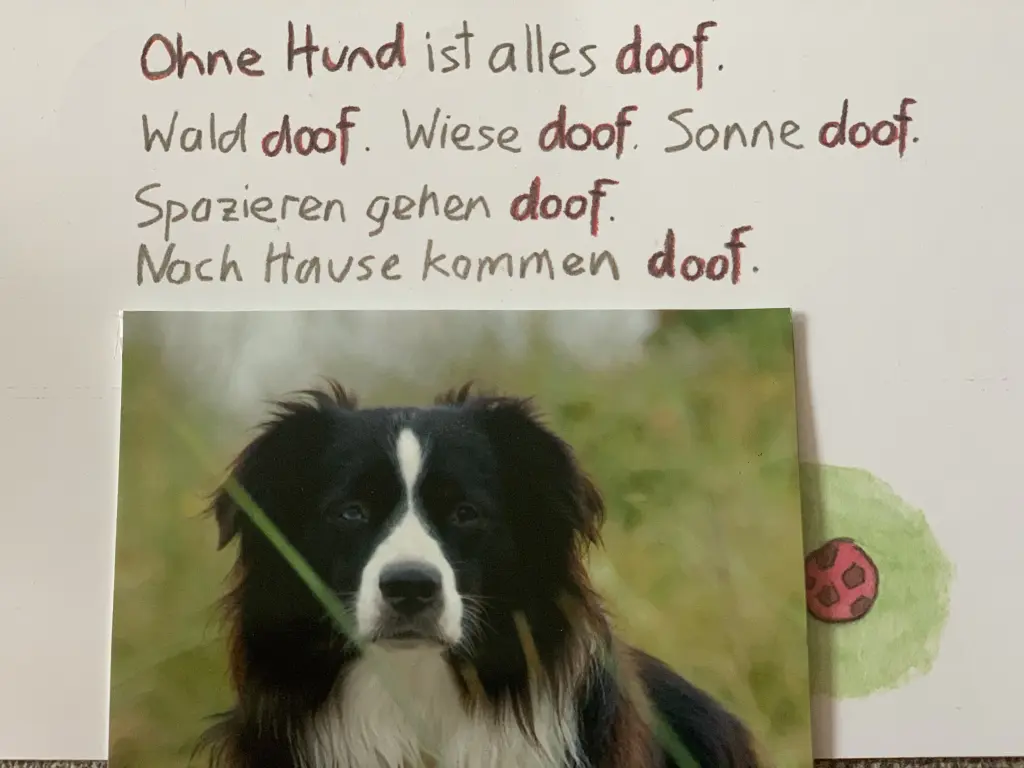 Ohne Hund ist alles doof.
Wald doof. Wiese doof. Sonne doof.
Spazieren gehen doof.
Nach Hause kommen doof.